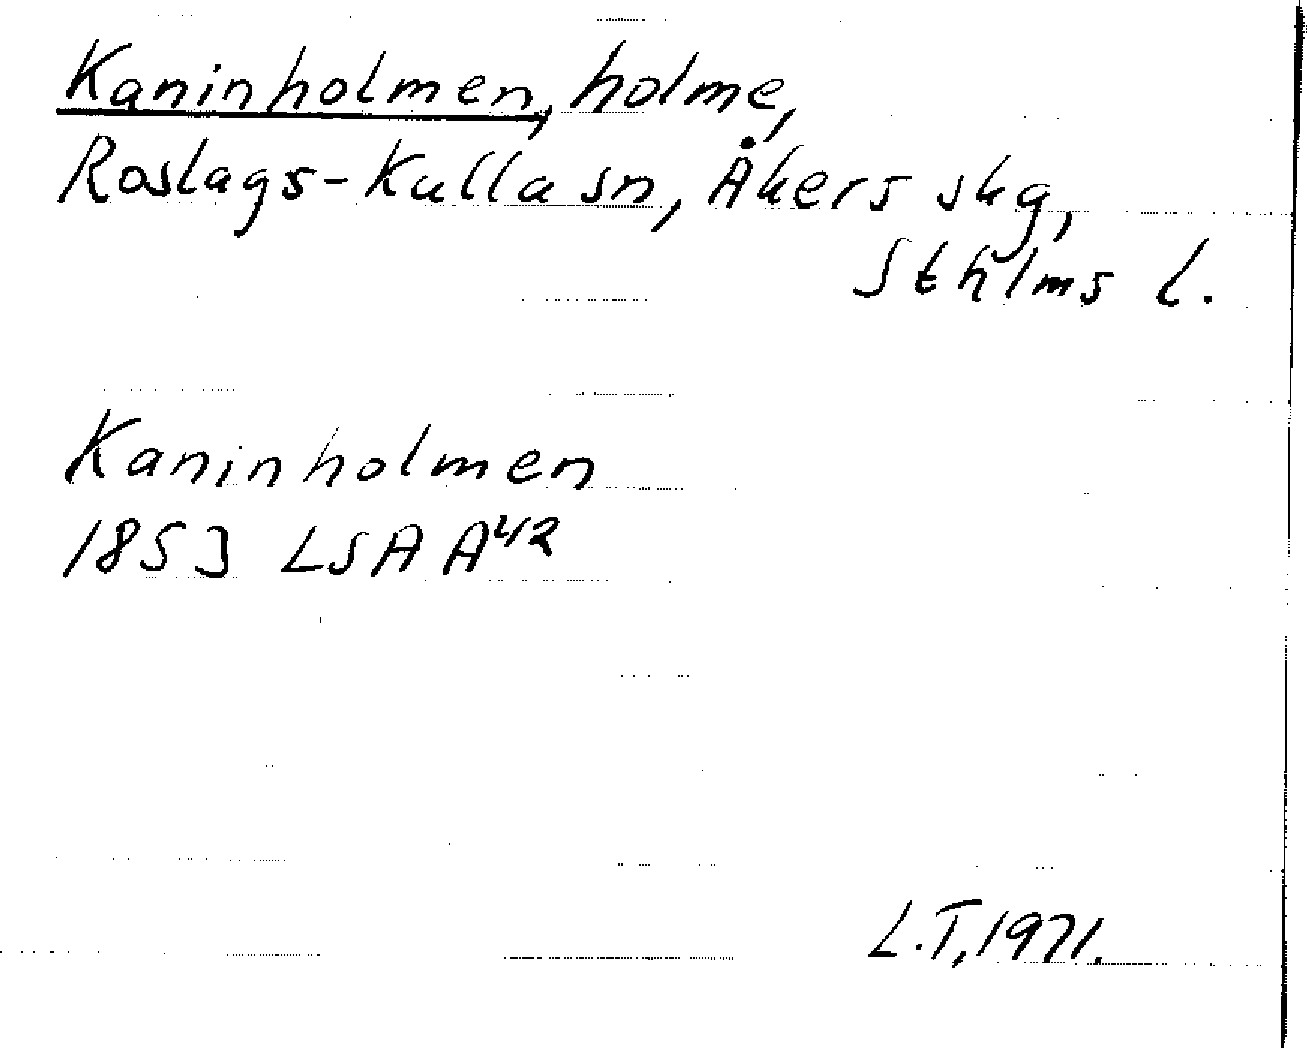 Kaninholmen, holme,
Roslags-Kulla sn, Åkers skg,
Sthlms l.
Kaninholmen
1853 LSA A42
L.T, 1971.